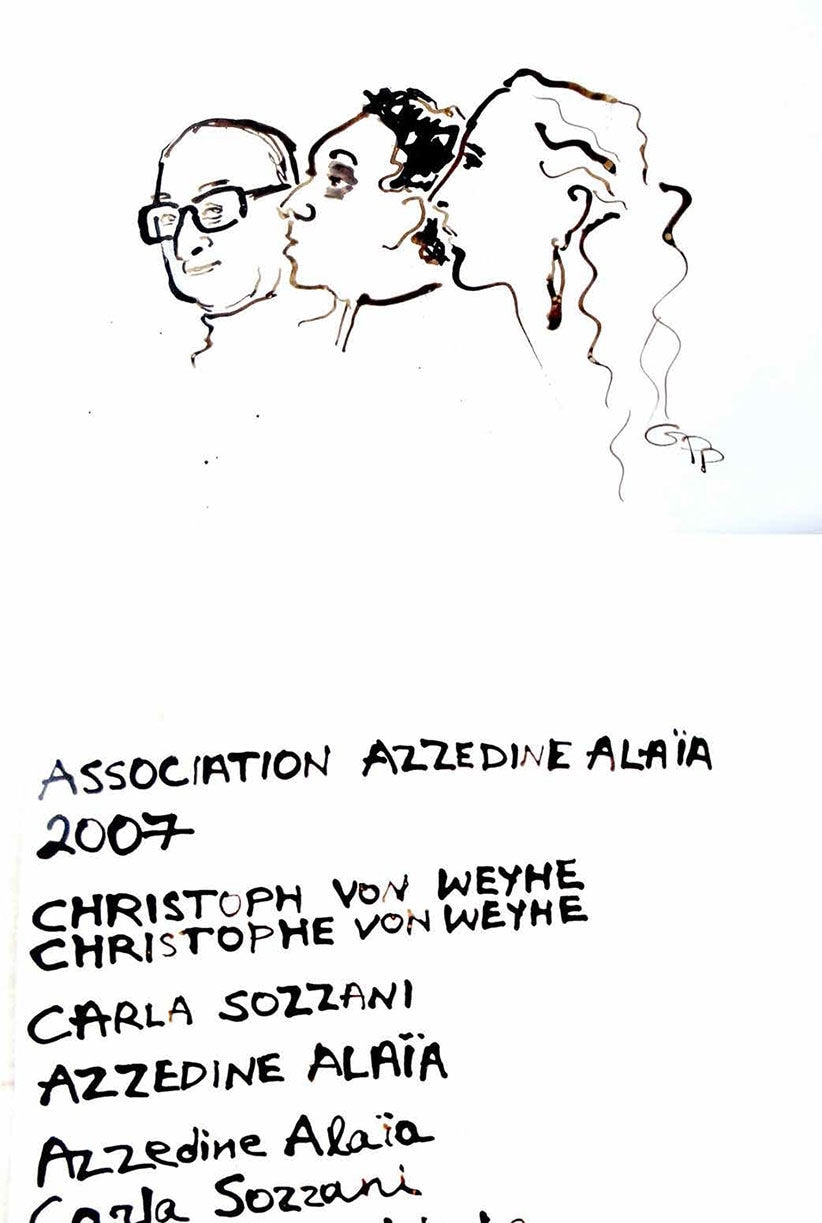 GPP
ASSOCIATION AZZEDINE ALAÏA
2007
CHRISTOPH VON WEYHE
CHRISTOPHE VON WEYHE
CARLA SOZZANI
AZZEDINE ALAÏA
Azzedine Alaïa
Carla Sozzani